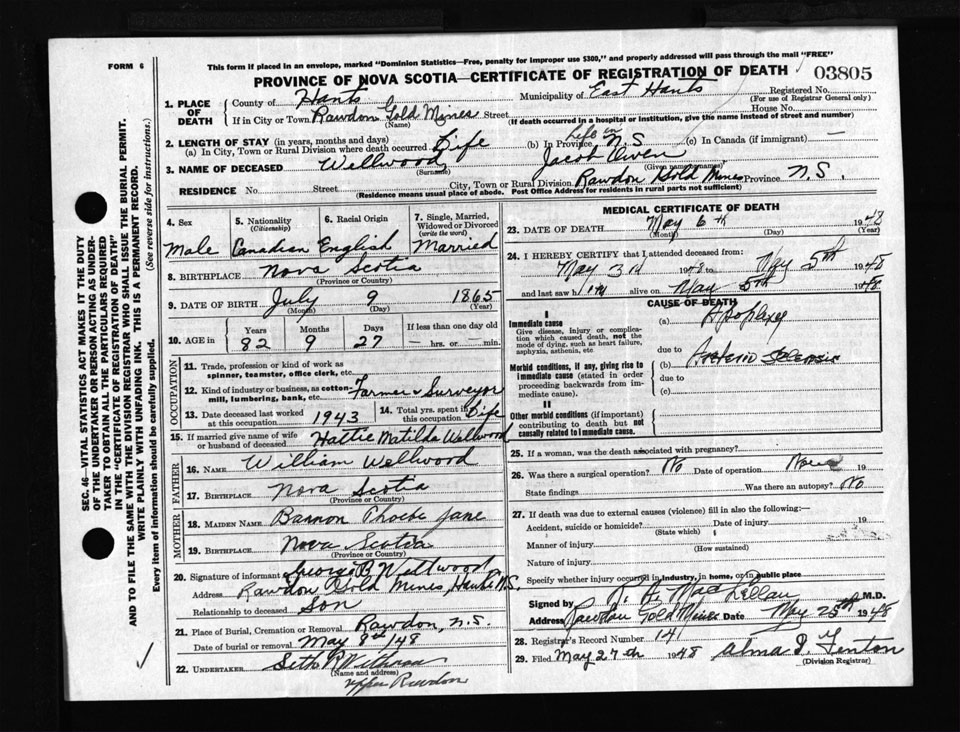 FORM 6
This form if placed in an envelope, marked "Dominion Statistics—Free, penalty for improper use $300," and properly addressed will pass through the mail "FREE"
PROVINCE OF NOVA SCOTIA—CERTIFICATE OF REGISTRATION OF DEATH
03805
1. PLACE OF DEATH
County of Hants Municipality of East Hants Registered No.
(For use of Registrar General only)
If in City or Town Rawdon Gold Mines Street House No.
(Name) (If death occurred in a hospital or institution, give the name instead of street and number)
2. LENGTH OF STAY (in years, months and days)
(a) In City, Town or Rural Division where death occurred Life (b) In Province Life in N.S (c) In Canada (if immigrant) —
3. NAME OF DECEASED Wellwood Jacob Owen
(Surname) (Given or names)
RESIDENCE No. Street City, Town or Rural Division Rawdon Gold Mines Province N.S.
(Residence means usual place of abode. Post Office Address for residents in rural parts not sufficient)
4. Sex Male
5. Nationality (Citizenship) Canadian
6. Racial Origin English
7. Single, Married, Widowed or Divorced (write the word) Married
8. BIRTHPLACE Nova Scotia
(Province or Country)
9. DATE OF BIRTH July 9 1865
(Month) (Day) (Year)
10. AGE in Years Months Days If less than one day old
82 9 27 — hrs. or — min.
OCCUPATION
11. Trade, profession or kind of work as spinner, teamster, office clerk, etc.
12. Kind of industry or business, as cotton-mill, lumbering, bank, etc. Farmer & Surveyor
13. Date deceased last worked at this occupation 1943
14. Total yrs. spent in this occupation Life
15. If married give name of wife or husband of deceased Hattie Matilda Wellwood
FATHER
16. NAME William Wellwood
17. BIRTHPLACE Nova Scotia
(Province or Country)
MOTHER
18. MAIDEN NAME Bannon Phoebe Jane
19. BIRTHPLACE Nova Scotia
(Province or Country)
20. Signature of informant George B Wellwood
Address Rawdon Gold Mines, Hants N.S.
Relationship to deceased Son
21. Place of Burial, Cremation or Removal Rawdon, N.S.
Date of burial or removal May 8th/48
22. UNDERTAKER Seth
(Name and address)
Upper Rawdon
MEDICAL CERTIFICATE OF DEATH
23. DATE OF DEATH May 6th 1948
(Month) (Day) (Year)
24. I HEREBY CERTIFY that I attended deceased from:
May 3rd 1948 to May 5th 1948
and last saw him alive on May 5th 1948
CAUSE OF DEATH
I
Immediate cause (a) Apoplexy
Give disease, injury or complication which caused death, not the mode of dying, such as heart failure, asphyxia, asthenia, etc
due to
Morbid conditions, if any, giving rise to immediate cause (stated in order proceeding backwards from immediate cause). (b) Arterio Sclerosis
due to
(c)
II
Other morbid conditions (if important) contributing to death but not causally related to immediate cause.
25. If a woman, was the death associated with pregnancy?
26. Was there a surgical operation? No Date of operation None 19
State findings Was there an autopsy? No
27. If death was due to external causes (violence) fill in also the following:—
Accident, suicide or homicide? Date of injury 19
(State which)
Manner of injury
(How sustained)
Nature of injury
Specify whether injury occurred in industry, in home, or in public place
Signed by MacLellan M.D.
Address Rawdon Gold Mines Date May 25th 1948
28. Registrar's Record Number 141
29. Filed May 27th 1948 Alma Fenton
(Division Registrar)
SEC. 46—VITAL STATISTICS ACT MAKES IT THE DUTY
OF THE UNDERTAKER OR PERSON ACTING AS UNDER-
TAKER TO OBTAIN ALL THE PARTICULARS REQUIRED
IN THE "CERTIFICATE OF REGISTRATION OF DEATH"
AND TO FILE THE SAME WITH THE DIVISION REGISTRAR WHO SHALL ISSUE THE BURIAL PERMIT.
WRITE PLAINLY WITH UNFADING INK. THIS IS A PERMANENT RECORD.
Every item of information should be carefully supplied. (See reverse side for instructions.)